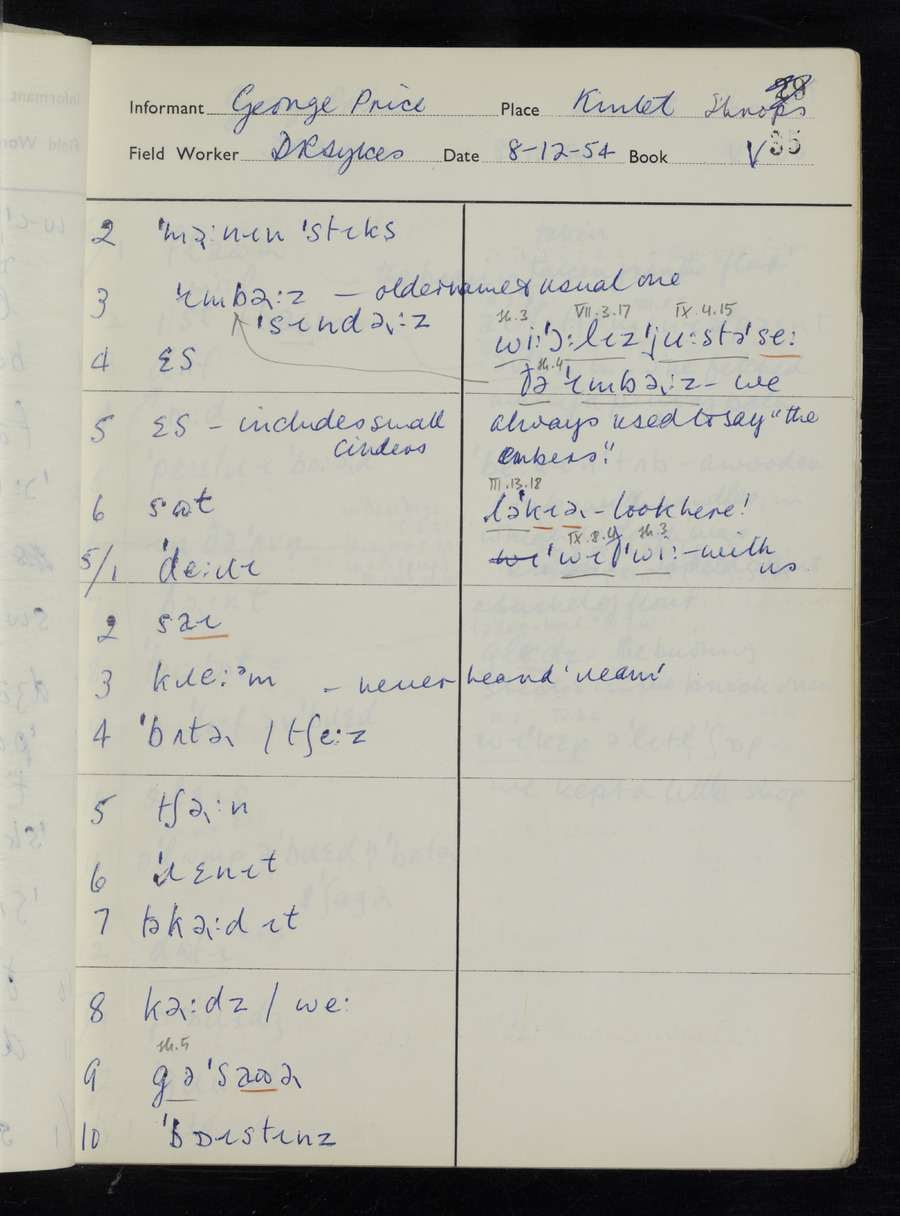 Informant George Price Place Kinlet Shrops
Field Worker D R Sykes Date 8-12-54 Book V 35
2 ˈmɚːnɪn ˈstɪks
3 ˈɪmbɚːz – older name & usual one
ˈsɪndɚːz
sh.3 VII.3.17 IX.4.15
wiːˈɔːlɪzˈjuːstəˈseː
4 ɛs
sh.4
ðə ˈɪmbɚːz – we
5 ɛs – includes small
cinders
always used to say "the
embers".
III.13.18
6 sɷt
ləkɪɚ – look here!
IX.8.4 sh.3
5/1 ˈdeːɹɪ
wɪ ˈwɪðˈwiː – with
us
2 saɪ
3 kɹeːᵊm – never heard 'ream'
4 ˈbʌtɚ / tʃeːz
5 tʃɚːn
6 ˈɹɛnɪt
7 təkɚːd ɪt
8 kɚːdz / weː
sh.5
9 gəˈsaɷɚ
10 ˈbɒɪstɪnz